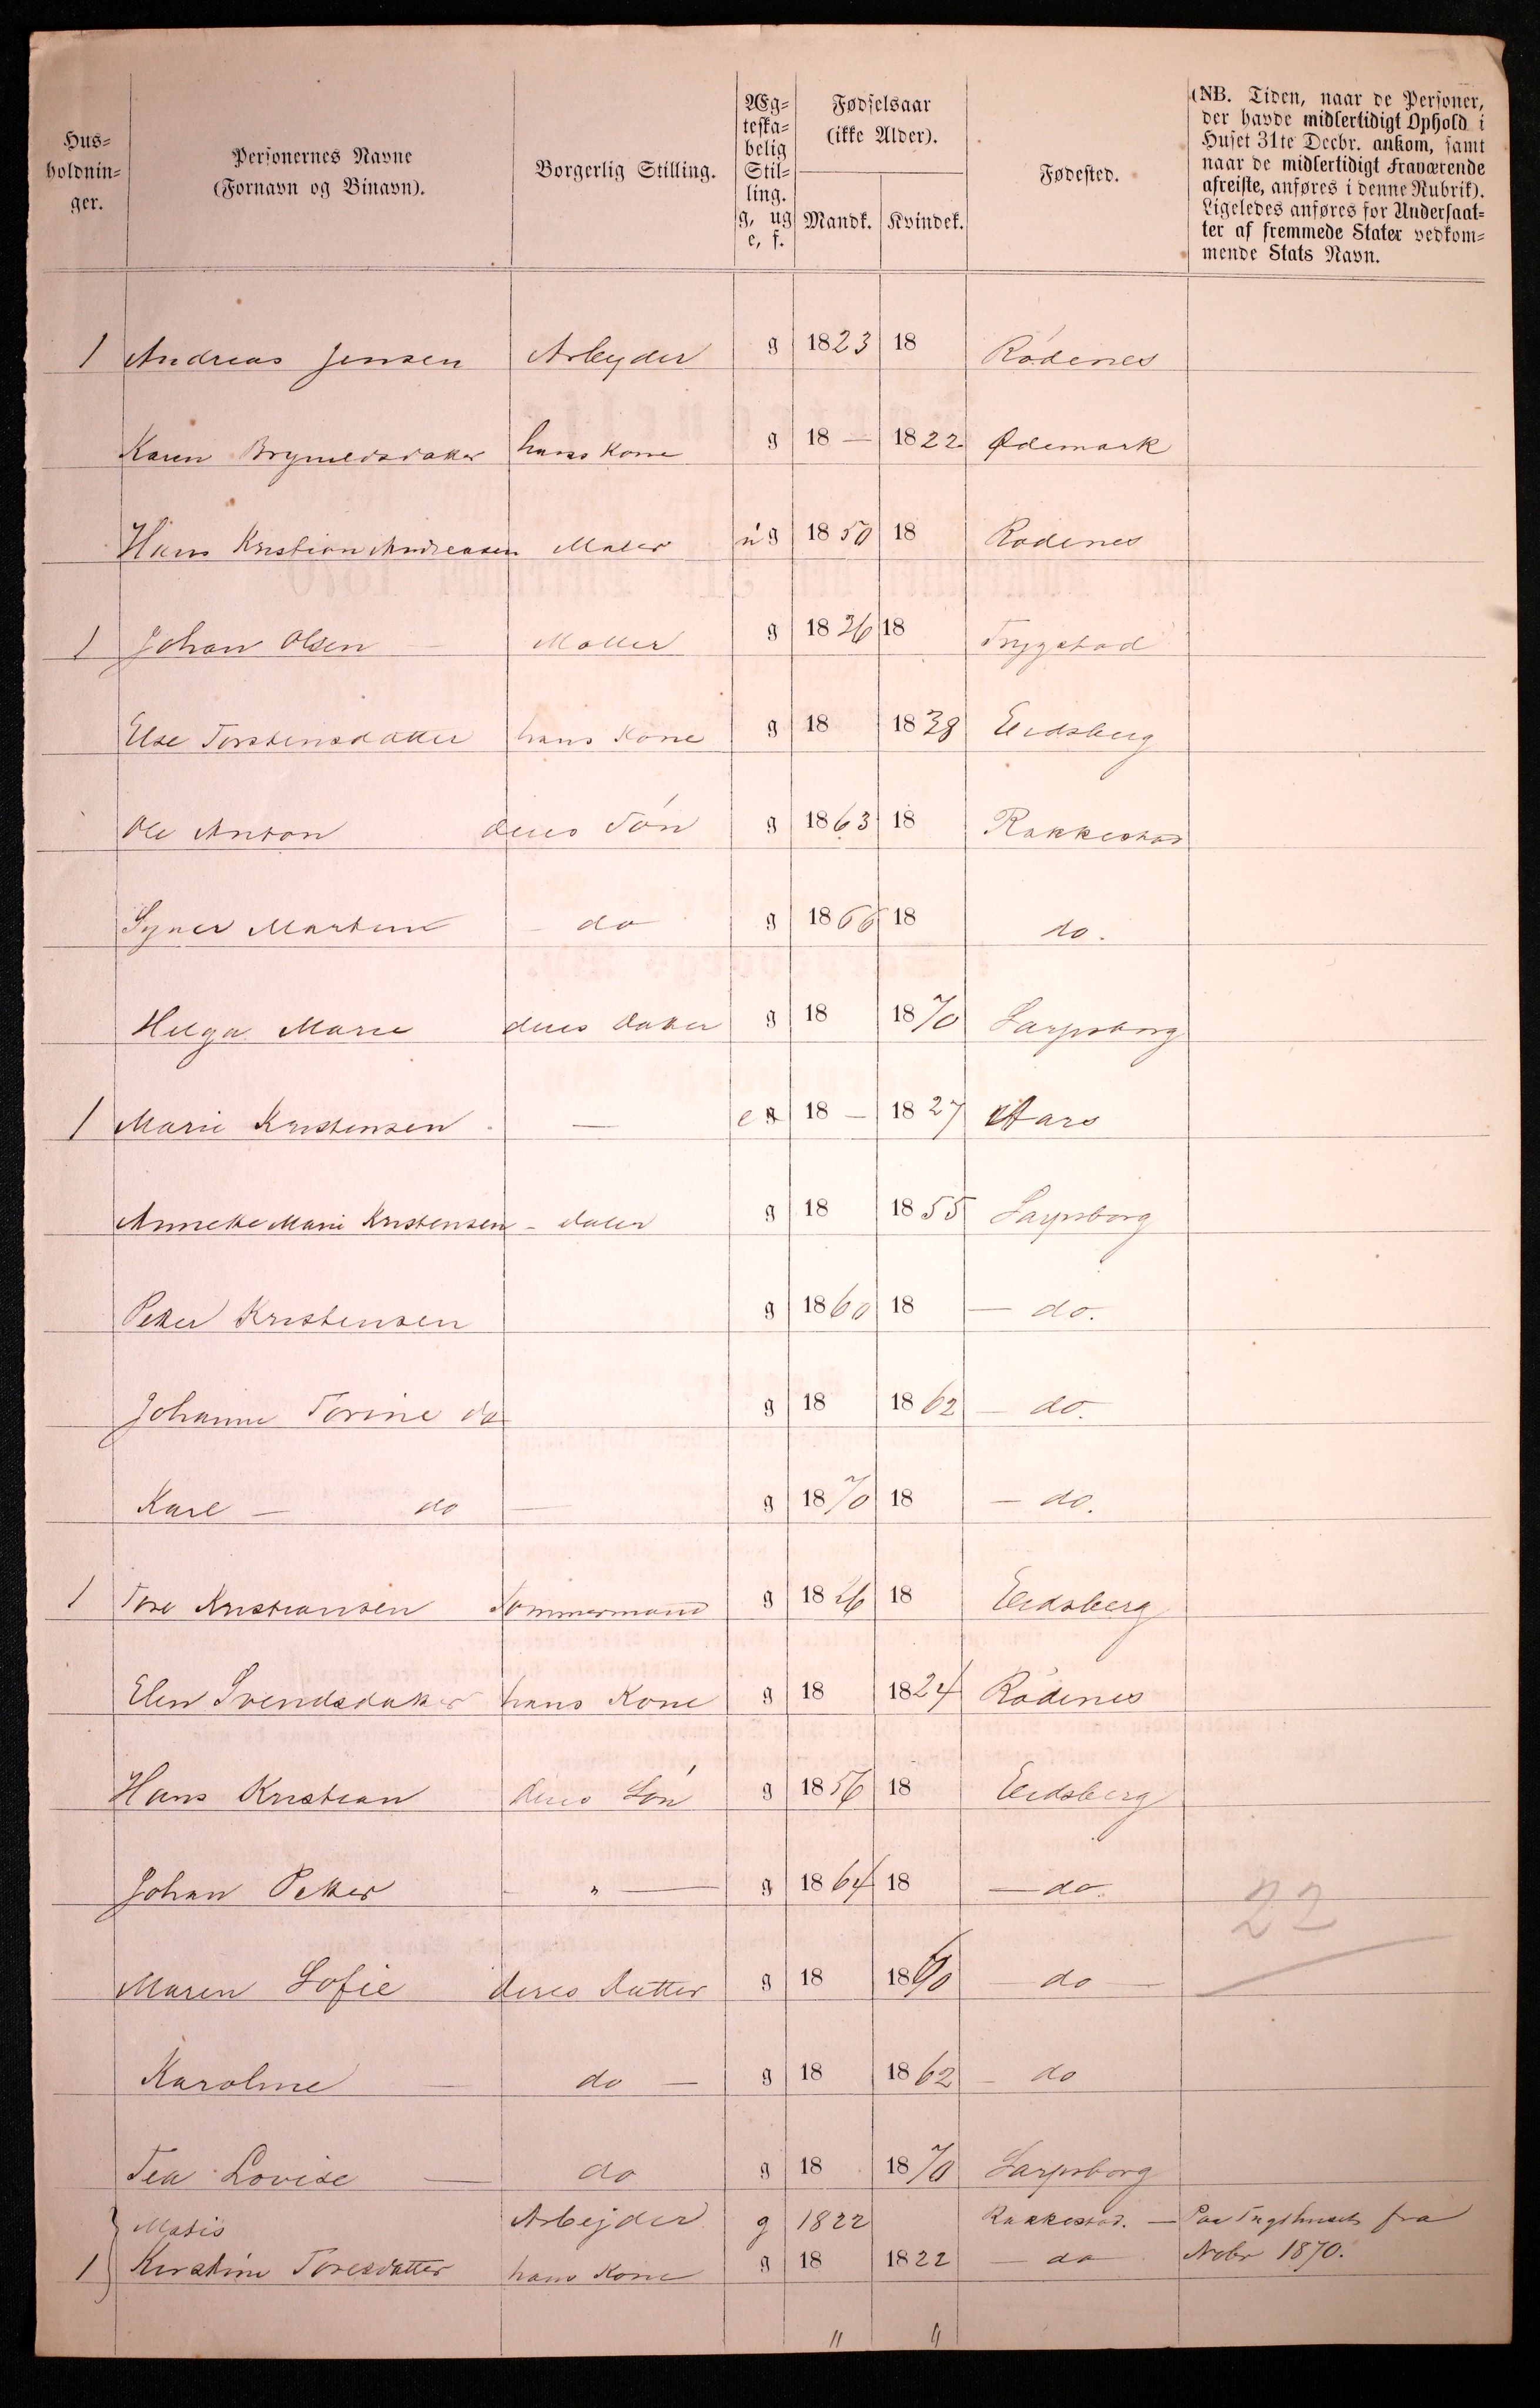 Hus-
holdnin-
ger.
Personernes Navne
(Fornavn og Binavn).
Borgerlig Stilling.
Æg-
teska-
belig
Stil-
ling.
g, ug
e, f.
Fødselsaar
(ikke Alder).
Mandk. Kvindek.
Fødested.
(NB. Tiden, naar de Personer,
der havde midlertidigt Ophold i
Huset 31te Decbr. ankom, samt
naar de midlertidigt fraværende
afreiste, anføres i denne Rubrik).
Ligeledes anføres for Undersaat-
ter af fremmede Stater vedkom-
mende Stats Navn.
1 Andreas Jensen Arbeyder g 1823 18 Rödenes
Karen Bryneldsdatter hans Kone g 18 — 1822 Ødemark
Hans Kristian Andreasen Maler ug 1850 18 Rødenes
1 Johan Olsen — Møller g 1826 18 Trygstad
Else Torstensdatter hans Kone g 18 1838 Eidsberg
Ole Anton deres Són g 1863 18 Rakkestad
Syver Martin — do g 1866 18 do.
Helga Marie deres Datter g 18 1870 Sarpsborg
1 Marie Kristensen — e g 18 — 1827 Aars
Annette Marie Kristensen - datter g 18 1855 Sarpsborg
Petter Kristensen g 1860 18 — do.
Johanne Torine do g 18 1862 — do.
Karl — do — g 1870 18 — do.
1 Tore Kristiansen Tømmermand g 1826 18 Eidsberg
Elen Svendsdatter hans Kone g 18 1824 Rödenes
Hans Kristian deres Són g 1856 18 Eidsberg
Johan Petter - " — g 1864 18 — do.
Maren Sofie deres Datter g 18 1860 — do —
22
Karoline — do — g 18 1862 — do
Tea Lovise — do g 18 1870 Sarpsborg
Matis Arbejder g 1822 Rakkestad. — Paa Tugthuset fra
1 Kirstine Toresdatter hans Kone g 18 1822 — do Nvbr 1870.
" "